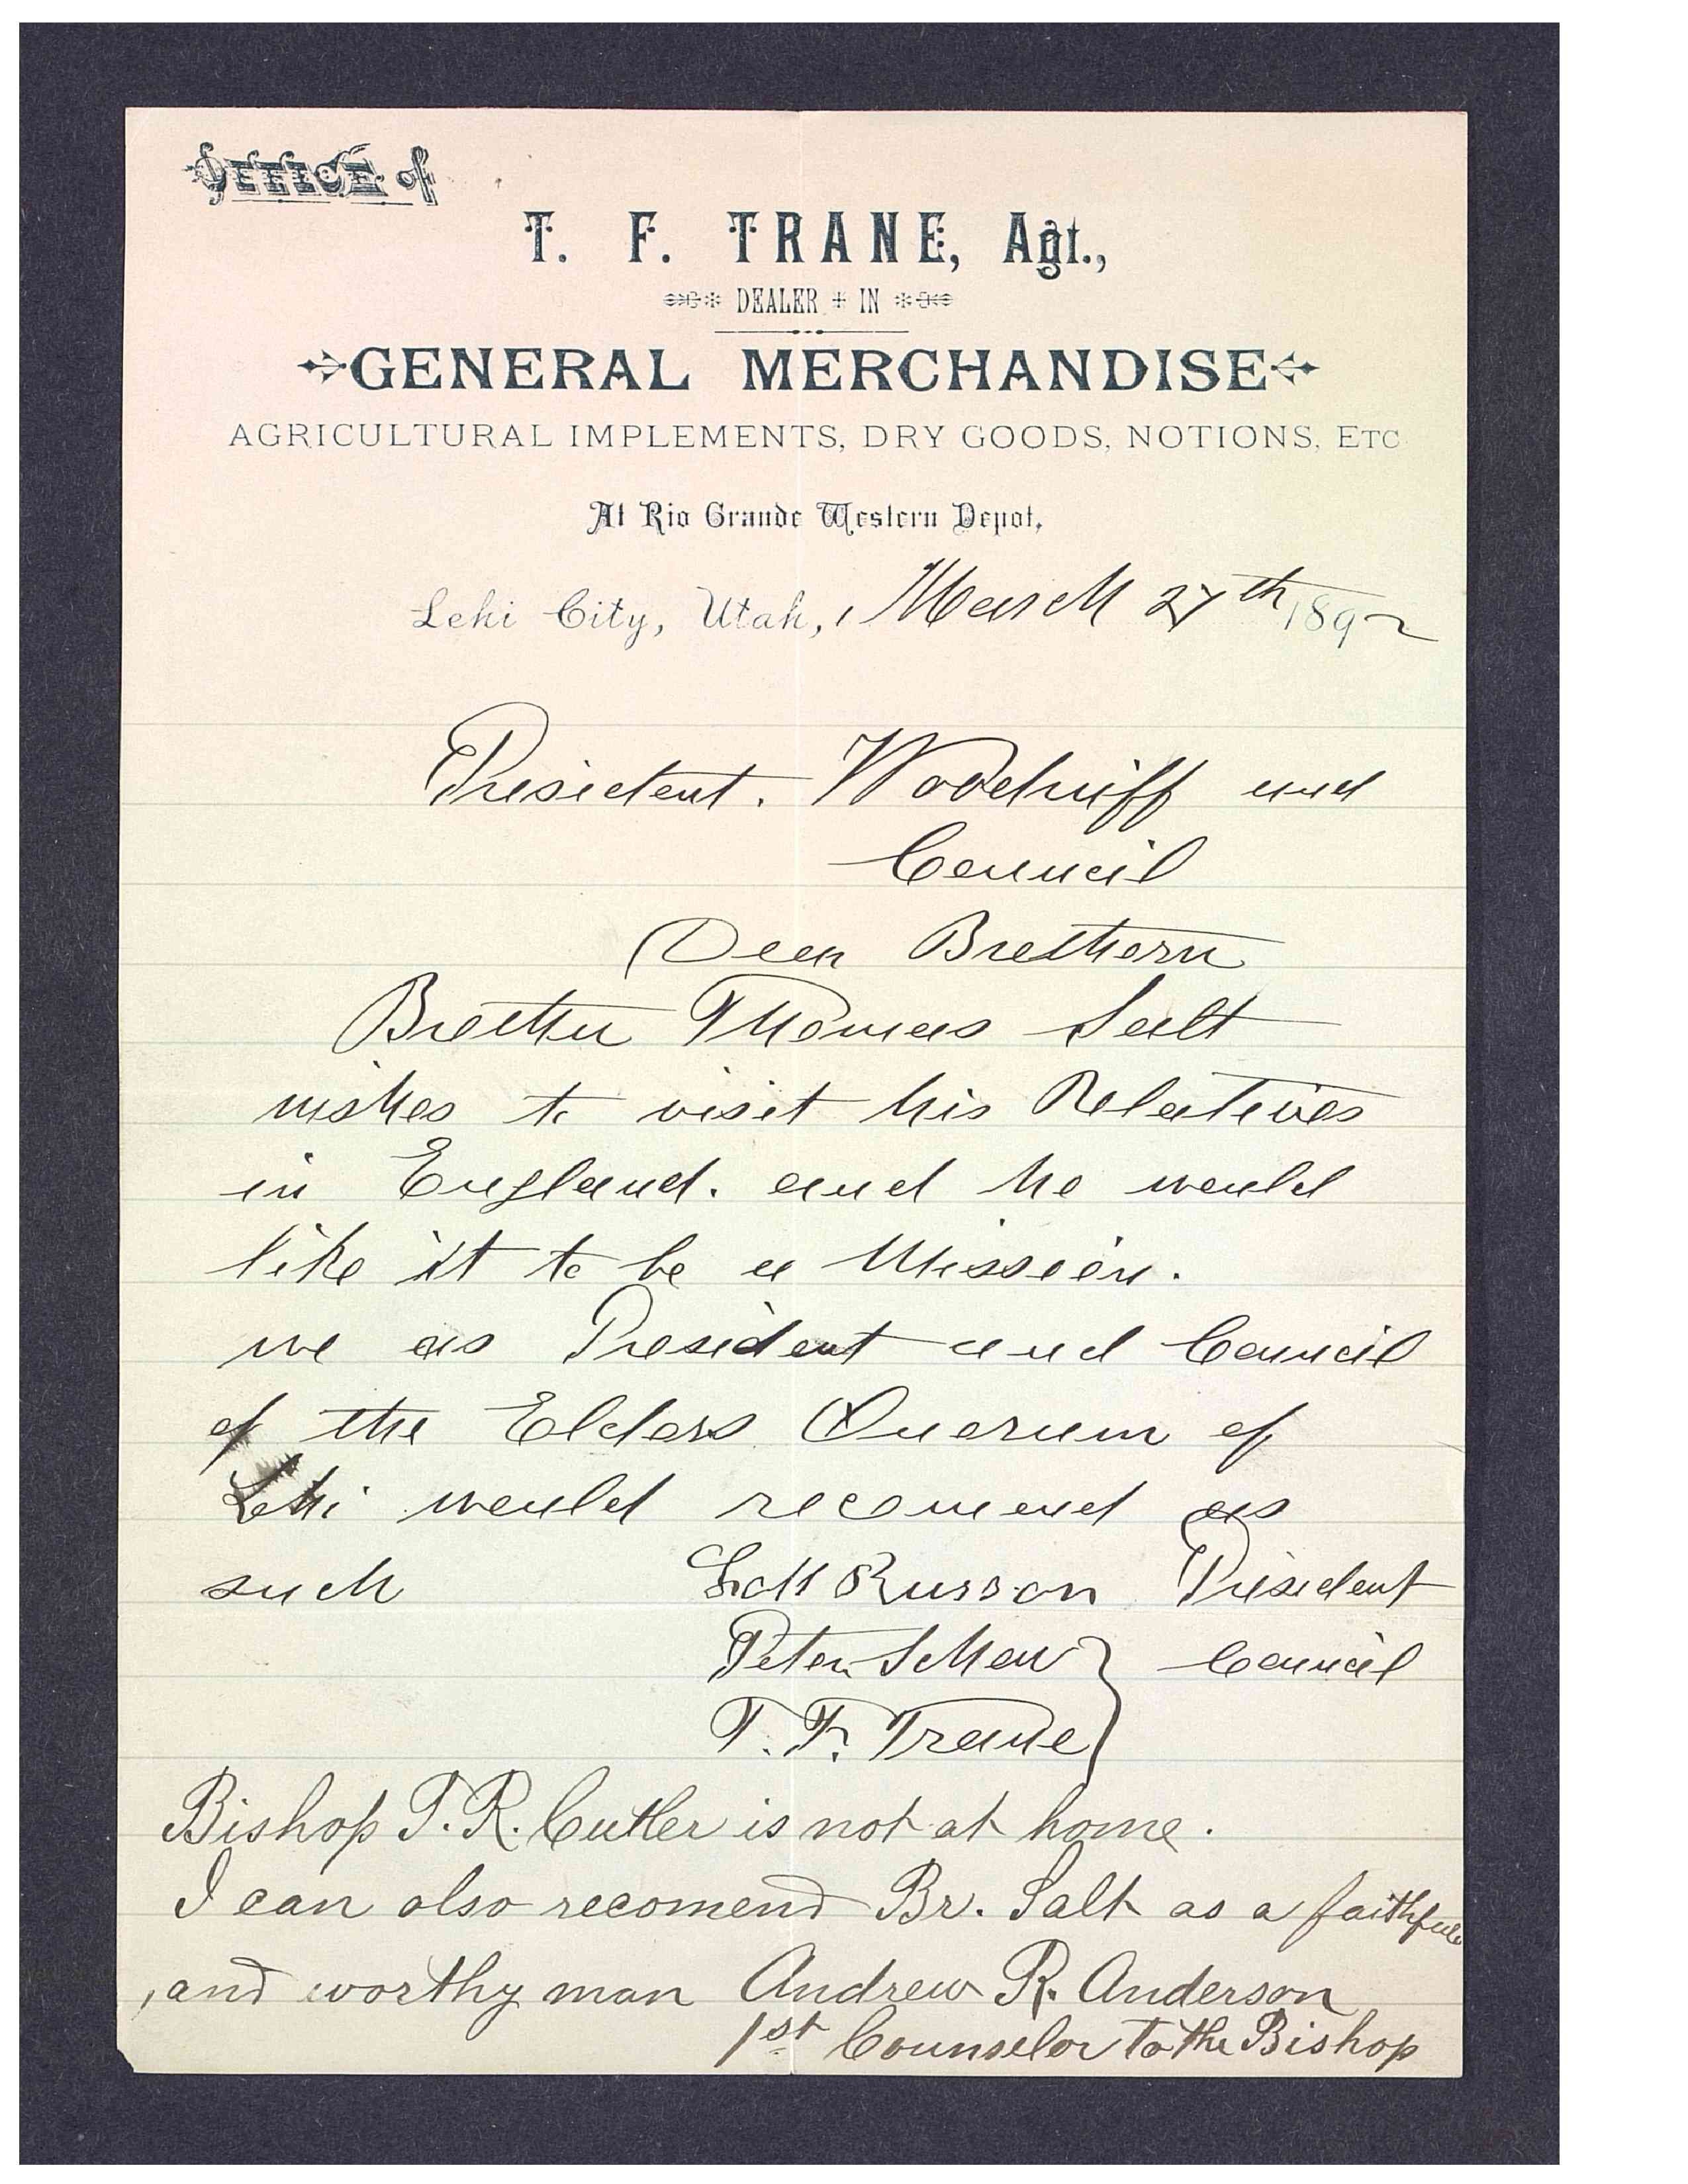 OFFICE of
T. F. TRANE, Agt.,
DEALER IN
GENERAL MERCHANDISE
AGRICULTURAL IMPLEMENTS, DRY GOODS, NOTIONS, ETC
At Rio Grande Western Depot,
Lehi City, Utah, March 27th 1892
President. Woodruff and
Council
Dear Brethern
Brother Thomas Salt
wishes to visit his Relatives
in England. and he would
like it to be a Mission.
we as President and Council
of the Elders Quorum of
Lehi would recomend as
such Russon President
Peter Council
T. F. Trane
Bishop T. R. Cutler is not at home.
I can also recomend Br. Salt as a faithful
and worthy man Andrew R. Anderson
1st Counselor to the Bishop